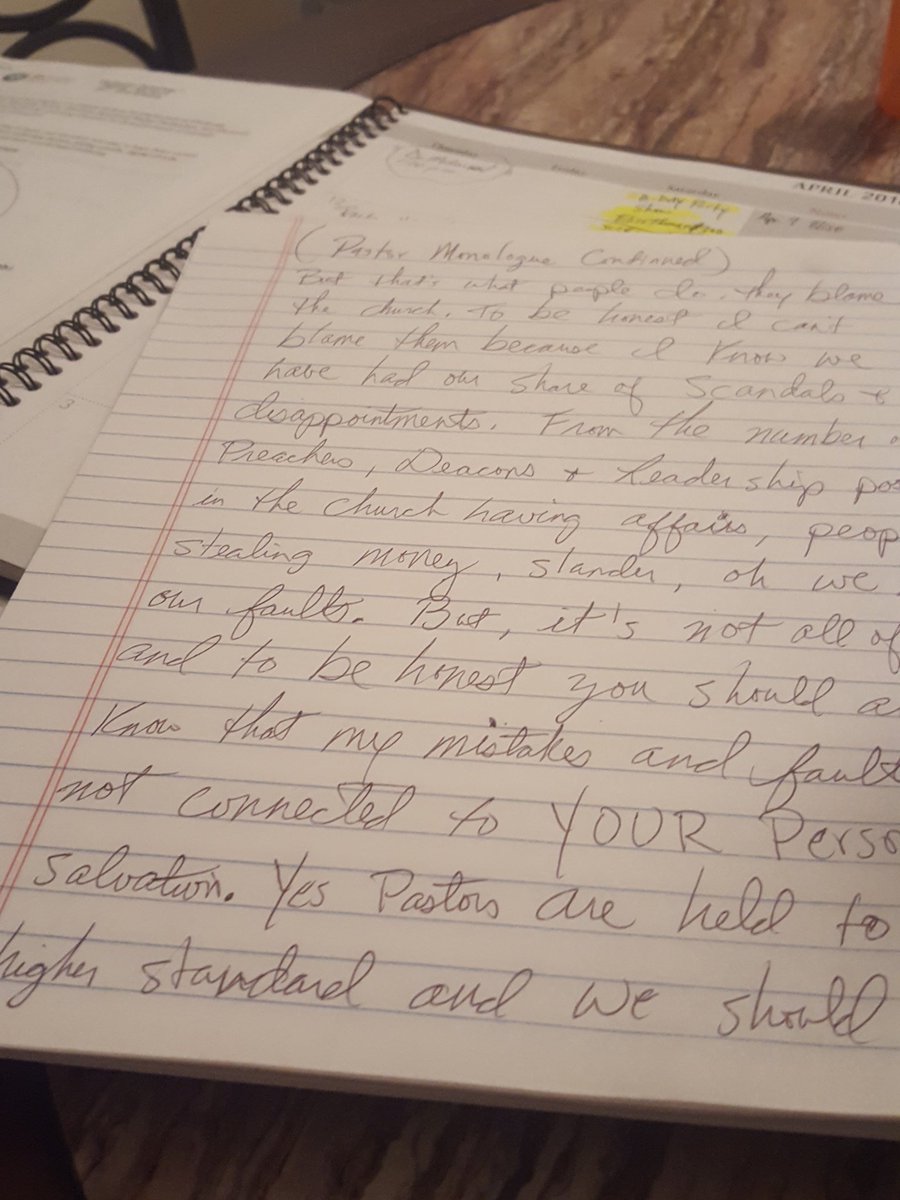 Thursday
Friday
Saturday
APRIL 201
Notes
(Pastor Monologue Continued)
But that's what people do, they blame
the church. To be honest I can't
blame them because I know we
have had our share of Scandals &
disappointments. From the number
Preachers, Deacons + Leadership pos
in the church having affairs, peop
stealing money, slander, oh we
our faults. But, it's not all of
and to be honest you should a
Know that my mistakes and fault
not connected to YOUR Perso
salvation. Yes Pastors are held to
higher standard and we should
3